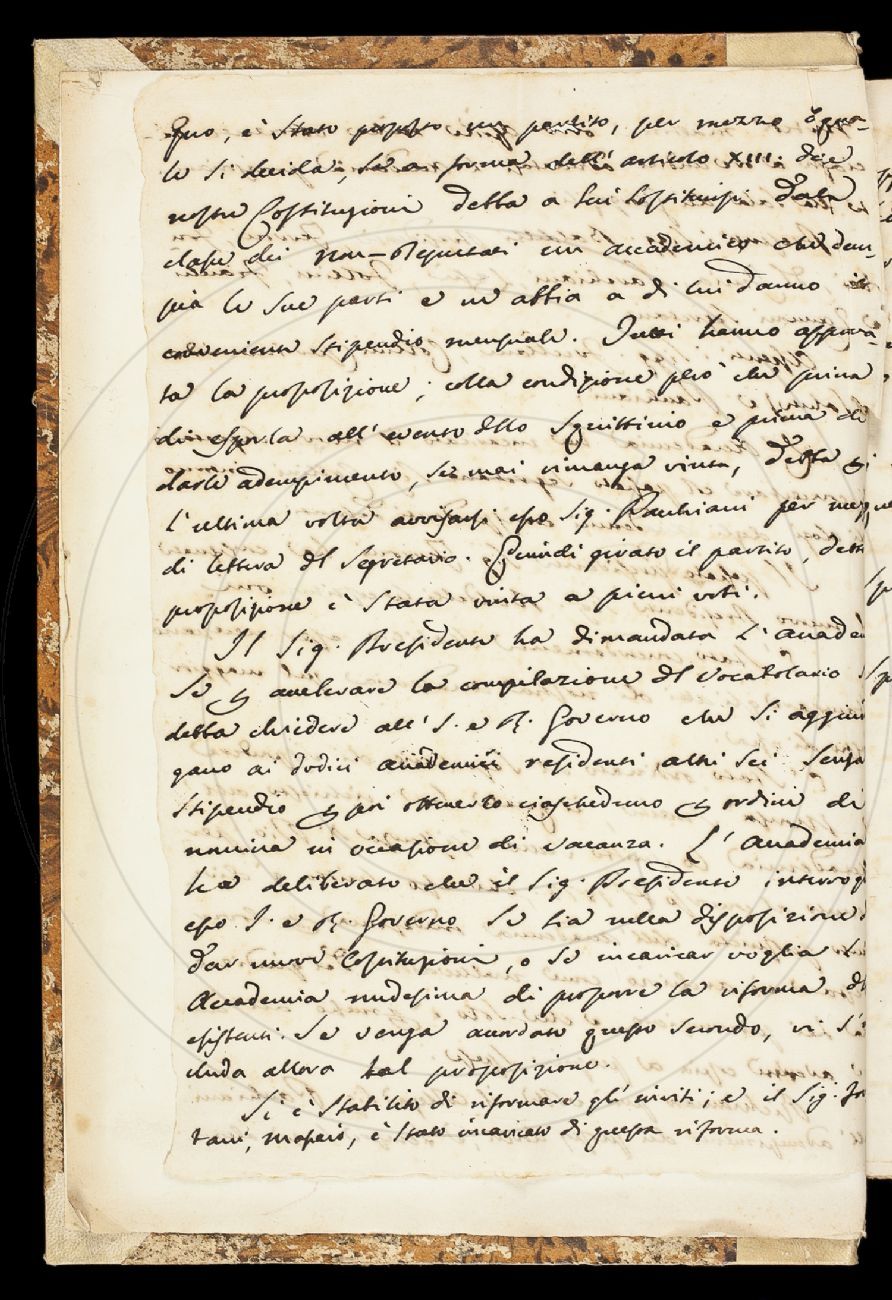 quo, è stato proposto un partito, per mezzo d qua-
le si decida, se a forma dell' articolo XIII. dlle
nostre Costituzioni debba a lui sostituirsi dalla
classe dei non-Deputati un accademico che adem-
pia le sue parti e ne abbia a di lui danno il
conveniente stipendio mensuale. Tutti hanno approva-
ta la proposizione; colla condizione però che prima
di esporla all' evento dllo Squittinio e prima di
darle adempimento, se mai rimanga vinta, debba
l' ultima volta avvisarsi esso Sig. per mez
di lettera dl Segretario. Quindi girato il partito, dett
proposizione è stata vinta a pieni voti.
Il Sig. Presidente ha dimandato l' Accade
se accelerare la compilazione dl Vocabolario
debba chiedere all' I. e R. Governo che si aggiun
gano ai dodici accademici residenti altri sei senza
stipendio poi ottenerlo ciascheduno ordine di
nomina in occasione di vacanza. L' Accademia
ha deliberato che il Sig. Presidente interrog
esso I. e R. Governo se sia nella disposizione d
dar nuove Costituzioni, o se incaricar voglia l
Accademia medesima di proporre la riforma dll
esistenti. Se venga accordato questo secondo, vi s'
cluda allora tal proposizione.
Si è stabilito di riformare gl' inviti; e il Sig.
tani, Massaio, è stato incaricato di questa riforma.